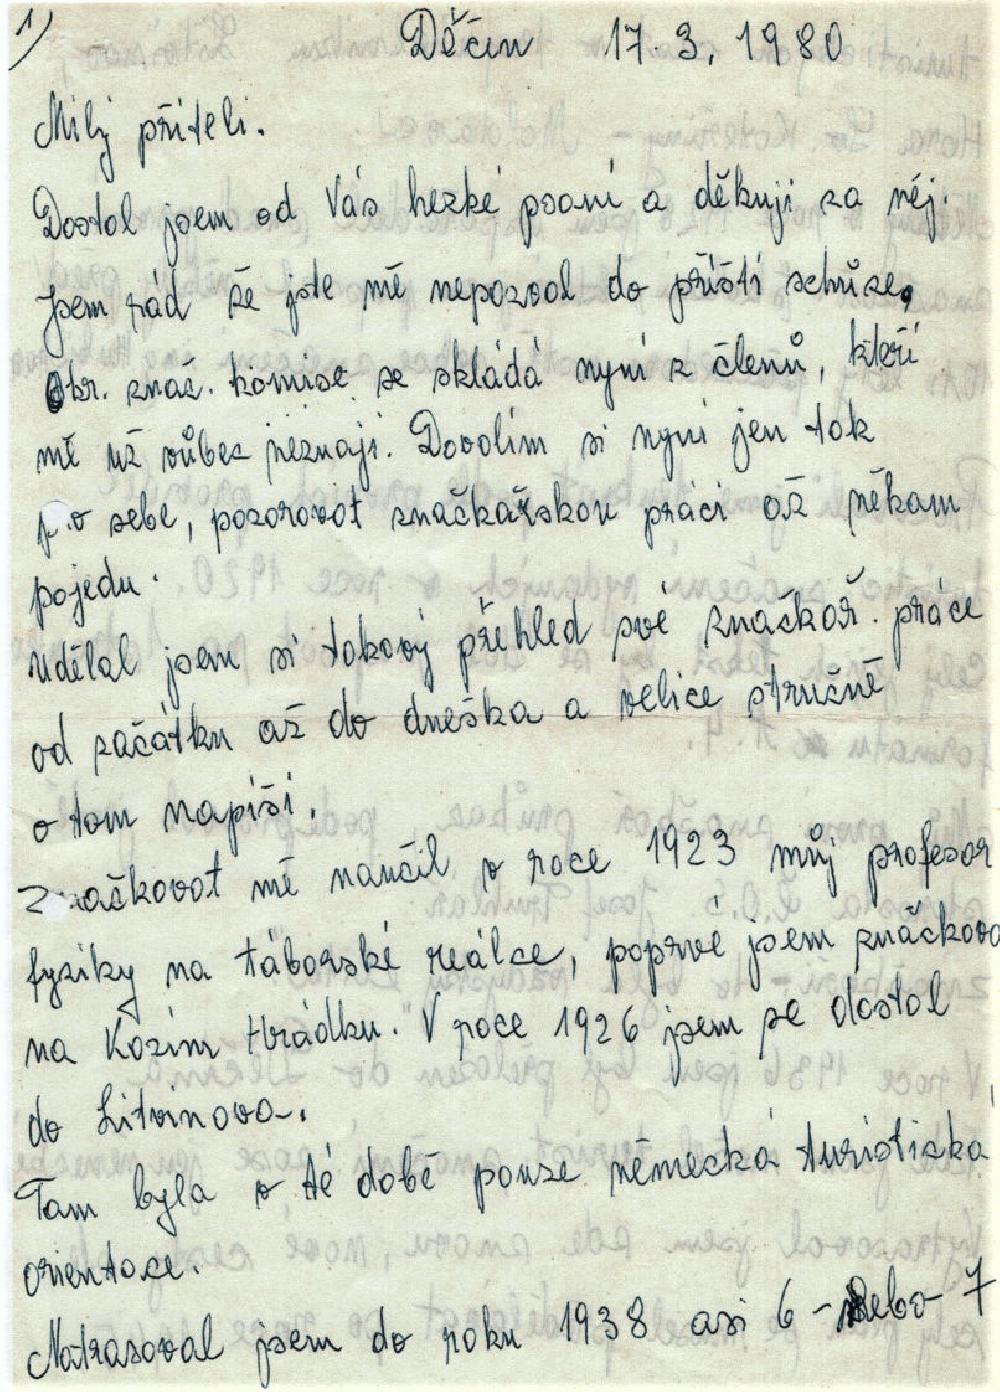 1)
Děčín 17.3.1980
Milý příteli.
Dostal jsem od Vás hezké psaní a děkuji za něj.
Jsem rád že jste mě nepozval do příští schůze,
Obr. znač. komise se skládá nyní z členů, kteří
mě už vůbec neznají. Dovolím si nyní jen tak
p o sebe, pozorovat značkařskou práci až někam
pojedu.
Udělal jsem si takový přehled své značkař. práce
od začátku až do dneška a velice stručně
o tom napíši.
Značkovat mě naučil v roce 1923 můj profesor
fyziky na táborské reálce, poprvé jsem značkova
na Kozím Hrádku. V roce 1926 jsem se dostal
do Litvínova.
Tam byla v té době pouze německá turistická
orientace.
Natrasoval jsem do roku 1938 asi 6 - nebo 7